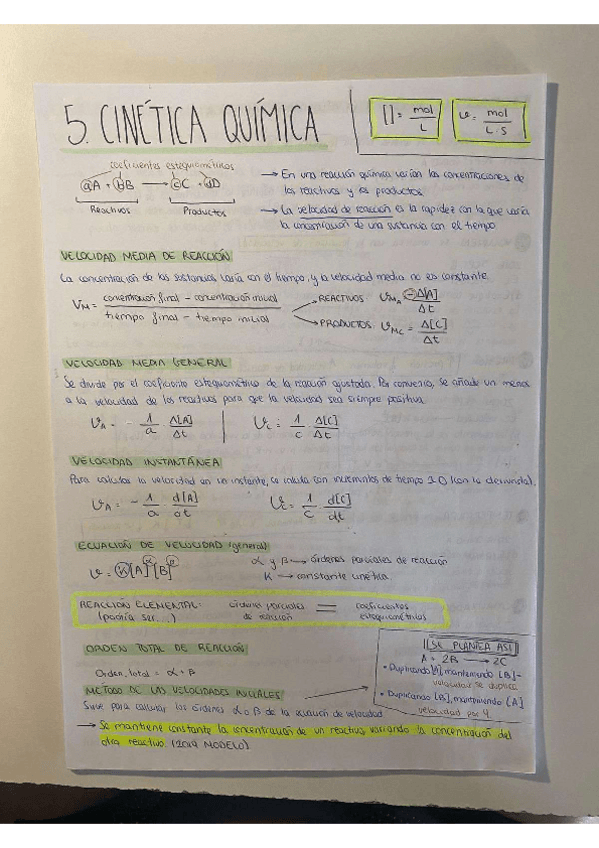 5. CINÉTICA QUÍMICA
[] = mol/L
v = mol/L·s
coeficientes estequiométricos
aA + bB → cC + dD
Reactivos Productos
→ En una reacción química varían las concentraciones de
los reactivos y los productos
→ La velocidad de reacción es la rapidez con la que varía
la concentración de una sustancia con el tiempo
VELOCIDAD MEDIA DE REACCIÓN
La concentración de las sustancias varía con el tiempo, y la velocidad media no es constante.
VM = concentración final - concentración inicial / tiempo final - tiempo inicial
REACTIVOS vMA = -Δ[A]/Δt
PRODUCTOS vMC = Δ[C]/Δt
VELOCIDAD MEDIA GENERAL
Se divide por el coeficiente estequiométrico de la reacción ajustada. Por convenio, se añade un menos
a la velocidad de los reactivos para que la velocidad sea siempre positiva.
vA = - 1/a · Δ[A]/Δt | vC = 1/c · Δ[C]/Δt
VELOCIDAD INSTANTÁNEA
Para calcular la velocidad en un instante, se calcula con incrementos de tiempo ≃0 (con la derivada).
vA = - 1/a · d[A]/dt vC = 1/c · d[C]/dt
ECUACIÓN DE VELOCIDAD (general)
v = K[A]^α[B]^β
α y β → órdenes parciales de reacción
K → constante cinética.
REACCIÓN ELEMENTAL: órdenes parciales = coeficientes
(podría ser...) de reacción estequiométricos
ORDEN TOTAL DE REACCIÓN
Orden total = α + β
MÉTODO DE LAS VELOCIDADES INICIALES
Sirve para calcular los órdenes α o β de la ecuación de velocidad
SE PLANTEA ASÍ
A + 2B → 2C
• Duplicando [A], manteniendo [B] -
velocidad se duplica
• Duplicando [B], manteniendo [A]
velocidad por 4
→ Se mantiene constante la concentración de un reactivo variando la concentración del
otro reactivo (2019 MODELO)